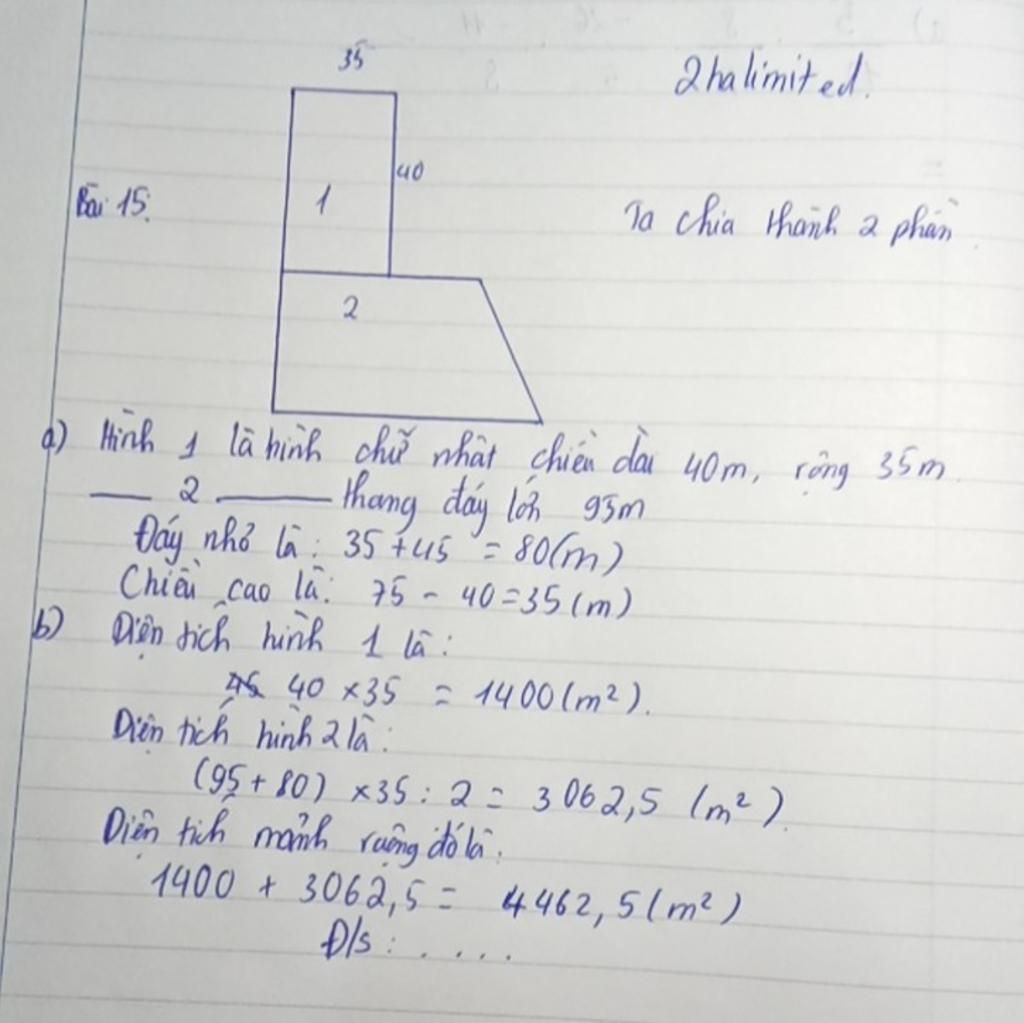 35
2halimited.
40
Bài 15:
1
Ta chia thành 2 phần.
2
a) Hình 1 là hình chữ nhật chiều dài 40m, rộng 35m.
___ 2 ______ thang đáy lớn 95m
Đáy nhỏ là: 35 + 45 = 80(m)
Chiều cao là: 75 - 40 = 35 (m)
b) Diện tích hình 1 là:
40 × 35 = 1400 (m²).
Diện tích hình 2 là:
(95 + 80) × 35 : 2 = 3062,5 (m²).
Diện tích mảnh ruộng đó là:
1400 + 3062,5 = 4462,5 (m²)
Đ/s: . . . .